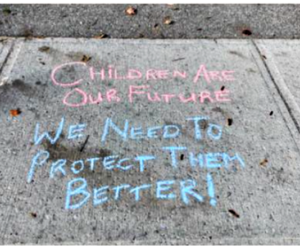 CHILDREN ARE
OUR FUTURE
WE NEED TO
PROTECT THEM
BETTER!